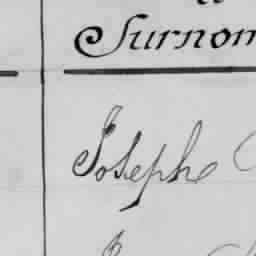 Surnom
Joseph